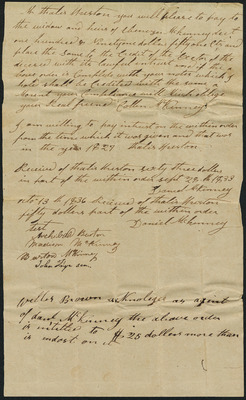 Mr Thales Huston you will please to pay to
the widow and heirs of Ebenezer McKinney dect
one hundred & Ninety dollars fifty eight Cts and
place the same to the Credit of the Estate of the
deceasd with the lawful interest and if the
above order is Complied with your notes which I
hold shall be Credited with the same
your Real friend Collin McKinney
I am willing to pay interest on the within order
from the time which it was given and that was
in the year 1827 Thales Huston
Received of Thales Huston sixty three dollars
in part of the within order Sept 22 th 1833
Daniel McKinney
Octr 13 th 1836 Received of Thales Huston
fifty dollars part of the within order
Daniel McKinney
Test
Archibald Huston
McKinney
Barton McKinney
John
Brown acknolages as agent
of McKinney the above order
is intitled to $ 25 dollars more than
is indorst on it